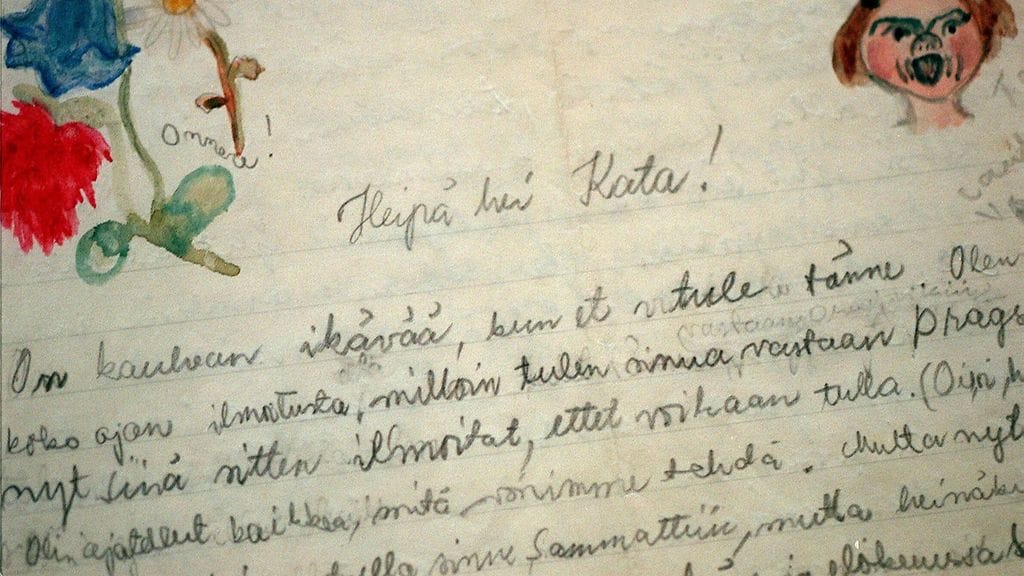 Onnea!
Heipä hei Kata!
On kauhean ikävää, kun et tule tänne. Olen
koko ajan ilmoitusta, milloin tulen sinua vastaan
nyt sinä sitten ilmoitat, ettet voikaan tulla. (Oisi
Olin ajatellut kaikkea, mitä voimme tehdä. Mutta nyt
tulla sinne Sammattiin, mutta heinäku
elokuussa